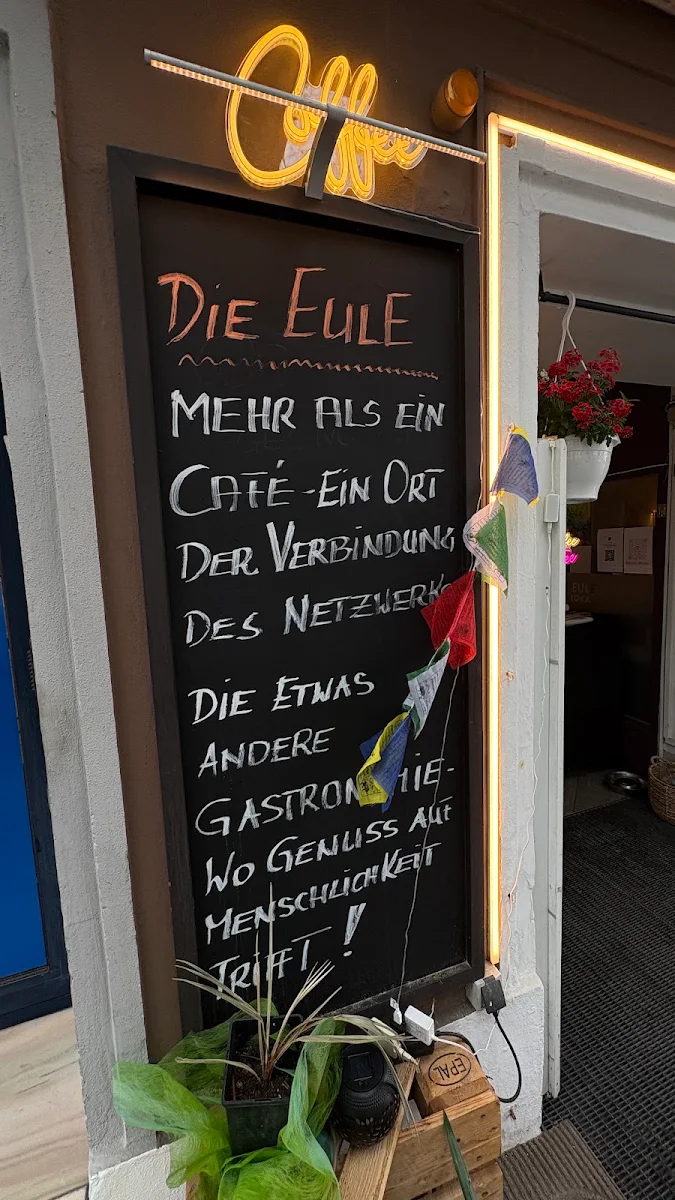 Coffee
DIE EULE
MEHR ALS EIN
CAFÉ - EIN ORT
DER VERBINDUNG
DES NETZWERKS
DIE ETWAS
ANDERE
GASTRONOMIE-
WO GENUSS AUF
MENSCHLICHKEIT
TRIFFT!
EPAL
EULE